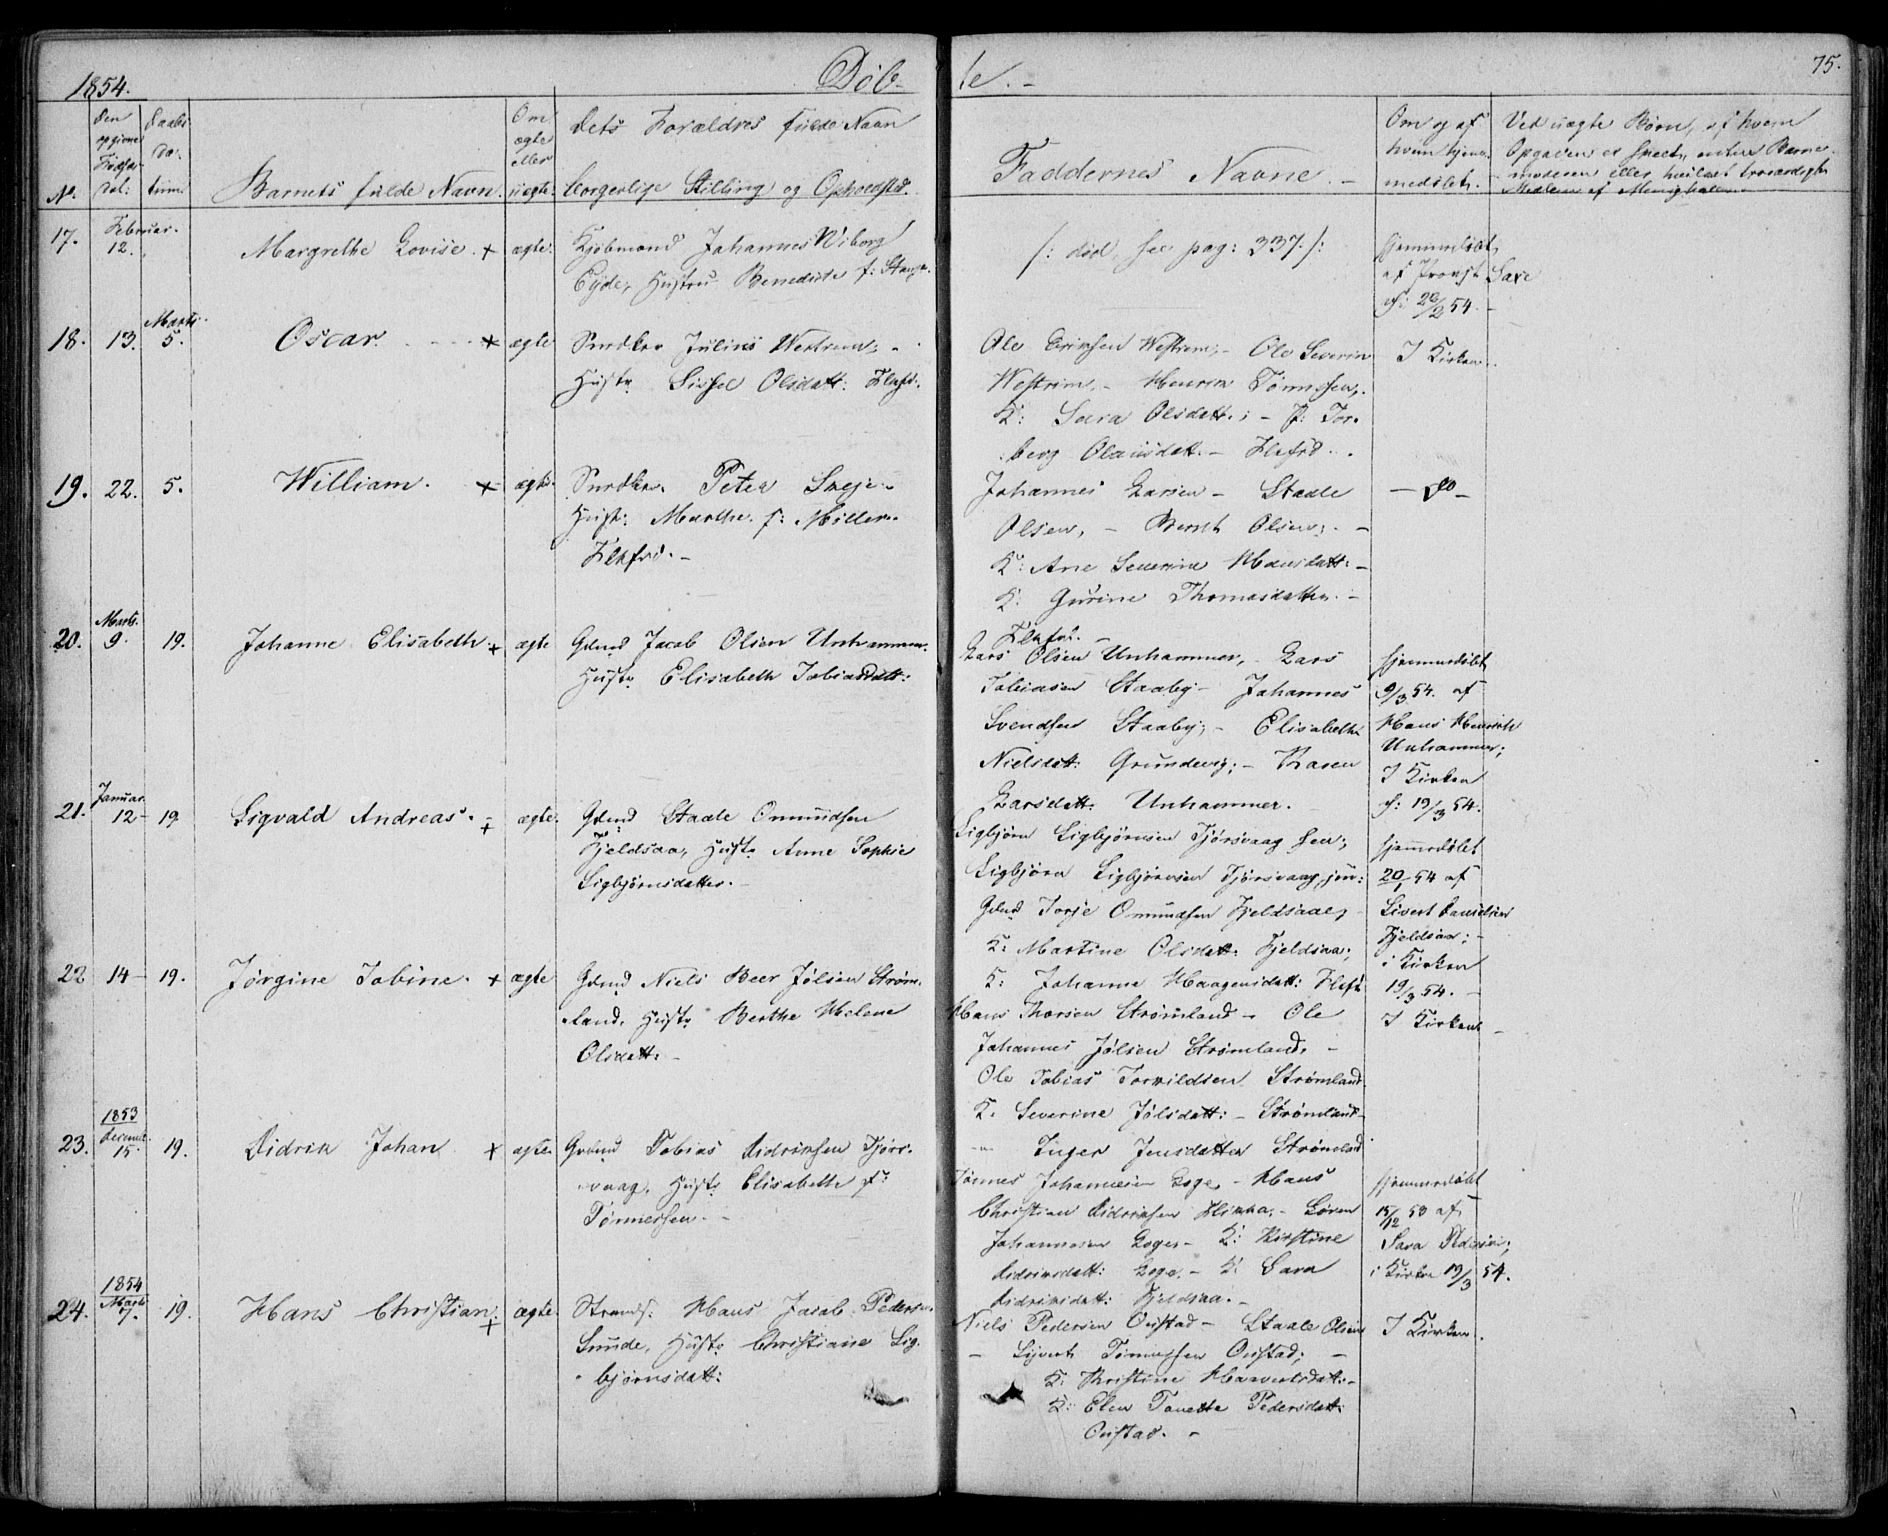 1854.
Døb-
te. -
75.
No.
Den opgivne Fødsels Dat:
Daabs Da- tum
Barnets fulde Navn.
Om ægte eller uægte.
Dets Forældres fulde Navn
borgerlige Stilling og Opholdsted.
Faddernes Navne. -
Om og af hvem hjemmedøbt.
Ved uægte Børn, af hvem
Opgaven er skeet, enten Barne-
moderen eller hvilket troværdigt
Medlem af Menigheden
17. Februar. 12. Margrethe Lovise. + ægte. Kjøbmand Johannes Wiborg
Eyde, Hustru Benedicte f:
/: død, see pag: 337. /:
hjemmedøbt
af Provst Saxe
20/2 54. -
18. 13. Marts 5. Oscar. + ægte Snedker Julius Westrem, -
Hustr Sissel Olsdatt: Flkfrd.
Ole Eriksen Westrem, - Ole Severin
Westrem, - Henrik Tønnessen,
K: Sara Olsdatt.; - P: Tor-
berg Olausdatt. - Flkfrd. -
I Kirken.
19. 22. 5. William. + ægte. Snedker. Peter Skeje.
Hust: Marthe. f: Møller.
Flkfrd. -
Johannes Larsen - Staale
Olsen, - Bernt Olsen, -
K: Ane Severine Hansdatt: -
K: Gurine Thomasdatter. -
Flkfrd. -
- do -
20. Marts. 9. 19. Johanne Elisabeth. + ægte Gdmd Jacob Olsen Unhammer.
Hustr Elisabeth Tobiasdatt:
Lars Olsen Unhammer, - Lars
Tobiasen Staaby - Johannes
Svendsen Staaby; - Elisabeth
Nielsdatt: Grundevig; - Karen
Larsdatt. Unhammer.
hjemmedøbt
9/3 54. af
Hans Henrik
Unhammer;
I Kirken
d: 19/3 54.
21. Januar. 12 - 19 Sigvald Andreas. + ægte. Gdmd Staale Omundsen
Fjeldsaa, Hustr Anne Sophie
Sigbjørnsdatter. -
Sigbjørn Sigbjørnsen Tjørsvaag sen;
Sigbjørn Sigbjørnsen Tjørsvaag jun:
Gdmd Torje Omundsen Fjeldsaae,
K: Martine Olsdatt: Fjeldsaa;
K: Johanne Haagensdatt: Flkf.
hjemmedøbt
20/1 54 af
Sivert Danielsen
Fjeldsaa; -
i Kirken
19/3 54. -
22 14 - 19. Jørgine Tobine. + ægte Gdmd Niels Beer Jølsen Strøm-
land, Hustr Berthe Helene
Olsdatt: -
Hans Thorsen Strømland - Ole
Johannes Jølsen Strømland. -
Ole Tobias Torkildsen Strømland
K. Severine Jølsdatt: - Strømland
-"- Inger Jensdatter Strømland
I Kirken -
23. 1853 Decemb. 15. 19. Didrik Johan + ægte. Gdmd Tobias Didriksen Tjørs-
vaag, Hustr Elisabeth f:
Tønnessen. -
Tønnes Johannesen Loge, - Hans
Christian Didriksen Flikka, - Søren
Johannesen Loge, - K: Kirstine
Didriksdatt: Loge, - K: Sara
Didriksdatt: Fjeldsaa. -
hjemmedøbt
15/12 53 af
Sara
i Kirken 19/3 54.
24. 1854 Marts 7. 19. Hans Christian. + ægte. Strands: Hans Jacob Pedersen
Sunde, Hustr Christiane Sig-
bjørnsdatt:
Niels Pedersen Østad - Staale Olsen
- Sivert Tønnessen Østad; -
K: Kirstine -
K: Elen Tonette Pedersdatt:
Østad. -
I Kirken.